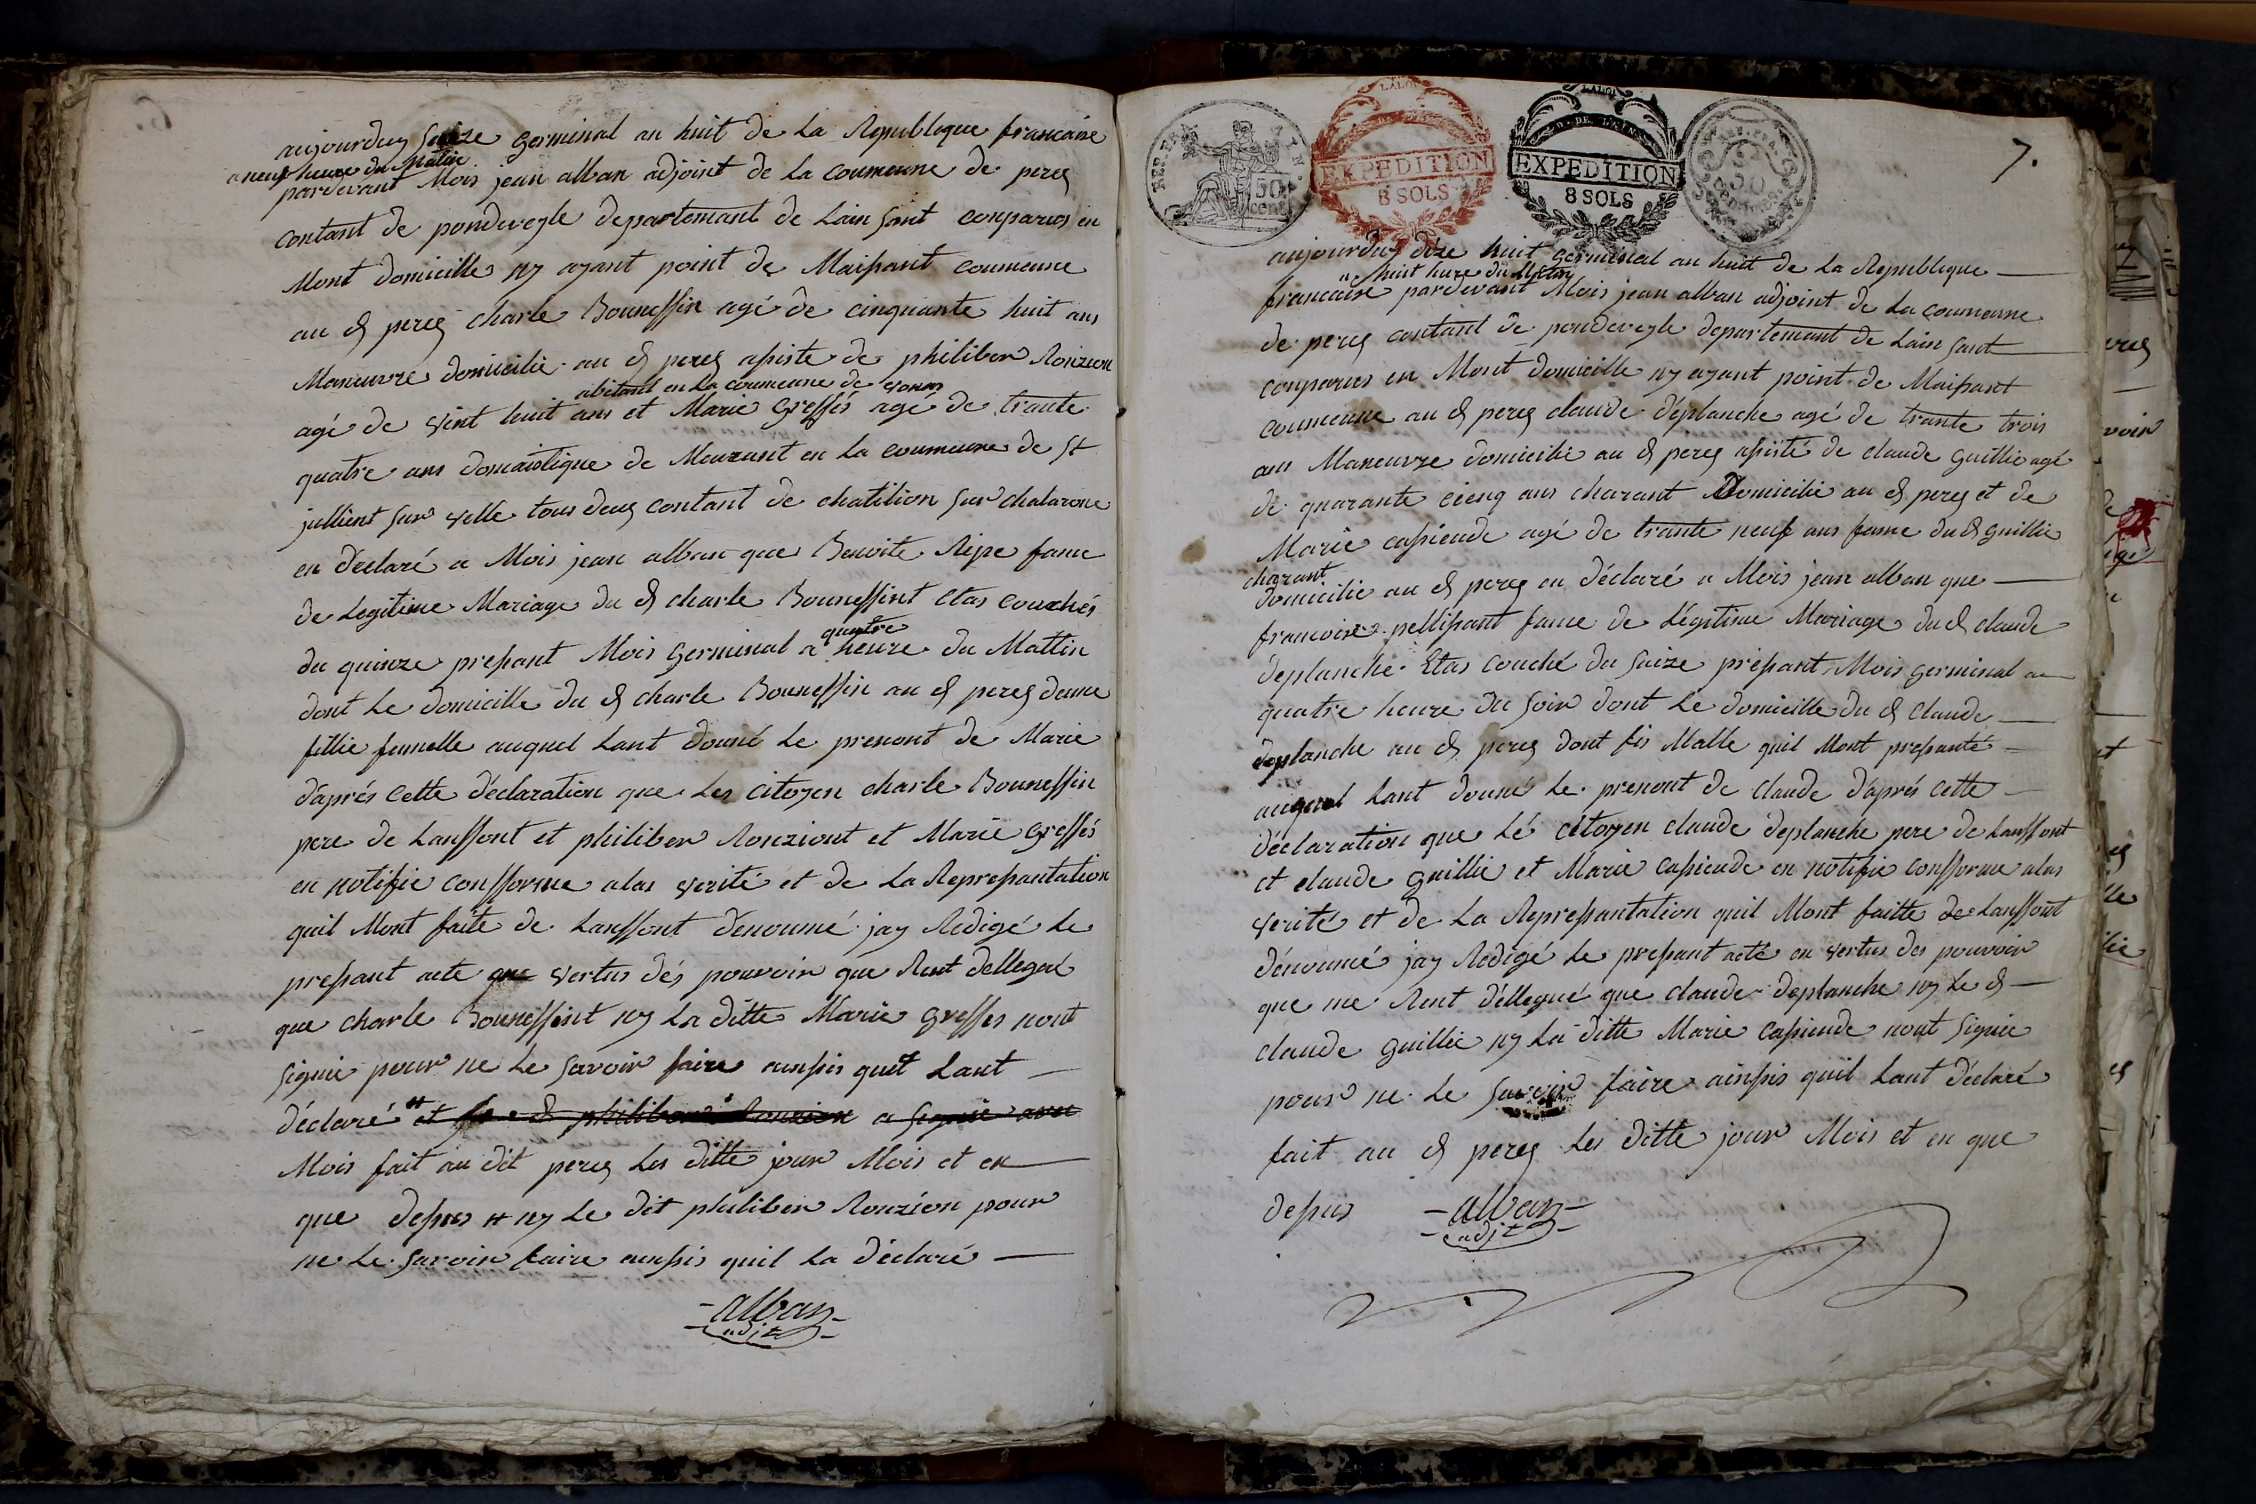 6.
aujourduy saize germinal an huit de la Republeque francaise
a neuf heure du Matin
pardevant Mois jean alban adjoint de la coumeune de perex
contant de pondevegle departemant de Lain sont conparus en
Mont domicille ny ayant point de Maipant coumeune
au d perex charle Bouneffin agé de cinquante huit ans
Maneuvre domicilie au d perex apiste de philiber Ronzion
abitant en La coumeune de vonas
agé de vint huit ans et Marie Greffés agé de trante
quatre ans domaistique de Mourant en La coumeune de St
jullient sur velle tous deux contant de chatilion sur chalarone
en déclaré a Mois jean alban que Benoite Ripe fame
de Legitime Mariage du d charle Bouneffint Etas couchés
du quinze prepant Mois germinal a quatre heure du Mattin
dont Le domicille du d charle Bouneffin au d perex deune
fillie femelle auquel Lant donné Le prenont de Marie
daprés cette déclaration que Les citoyen charle Bouneffin
pere de Lanffont et philiber Ronziont et Marie Greffés
en notifie confforme alas verité et de La Reprepantation
quil Mont faite de Lanffont dénoumé jay Redigé Le
prepant acte que vertus dés pouvoir que Ment dellegué
que charle Bouneffint ny La ditte Marie greffes nont
signie pour ne Le savoir faire ainpis quil Lant
déclaré # et philiber Ronzion a signie avec
Mois fait au dit perex Les ditte jour Mois et en
que depus # ny Le dit philiber Ronzion pour
ne Le savoir faire ainpis quil La déclaré
alban
adjt
REP. FRA
50
cent
LA LOI
EXPEDITION
8 SOLS
LA LOI
D. DE L'AIN
EXPEDITION
8 SOLS
50
7.
aujourduy dize huit germinal an huit de La Republeque
a huit hure du Matin
francaise pardevant Mois jean alban adjoint de La coumeune
de perex contant de pondevegle departemant de Lain sont
conparus en Mont domicille ny ayant point de Maipant
coumeune au d perex claude déplanche agé de trante trois
ans Maneuvre domicilie au d perex apisté de claude guillie agé
de quarante cienq ans charant Domicilie au d perex et de
Marie capieude agé de trante neuf ans fame du d guillie
charant
domicilie au d perex en déclaré a Mois jean alban que
francoise pellipant fame de Légitime Mariage du d claude
déplanche Etas couché du saize prépant Mois germinal a
quatre heure du soir dont Le domicille du d claude
deplanche au d perex dont fis Malle quil Mont prepanté
auquel Lant donné Le prenont de claude daprés cette
déclaration que Lé citoyen claude deplanche pere de Lanffont
et claude guillie et Marie capieude en notifie confforme alas
verité et de La Reprepantation quil Mont faitte de Lanffont
dénoumé jay Redigé Le prepant acté en vertus des pouvoir
que me Sont déllegué que claude deplanche ny Le d
claude guillie ny La ditte Marie capieude nont signie
pour ne Le savoir faire ainpis quil Lant déclaré
fait au d perex Les ditte jour Mois et en que
depus
alban
adjt